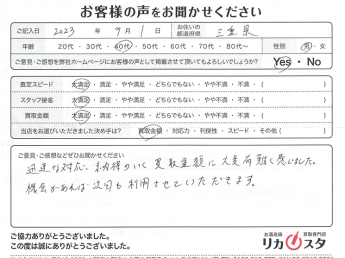 お客様の声をお聞かせください
ご記入日 2023 年 9 月 1 日 お住いの都道府県 三重県
年齢 20代・30代・40代・50代・60代・70代・80代〜 性別 男・女
ご意見・ご感想を弊社ホームページにお客様の声として掲載させて頂いてもよろしいでしょうか? Yes・No
査定スピード 大満足・満足・やや満足・どちらでもない・やや不満・不満・( )
スタッフ接客 大満足・満足・やや満足・どちらでもない・やや不満・不満・( )
買取金額 大満足・満足・やや満足・どちらでもない・やや不満・不満・( )
当店をお選びいただきました決め手は? 買取金額・対応力・利便性・スピード・その他( )
ご意見・ご感想などぜひお聞かせください
迅速な対応、納得のいく買取金額に大変有難く感じました。
機会があれば次回も利用させていただきます。
ご協力ありがとうございました。
この度は誠にありがとうございました。
お酒高級 買取専門店
リカスタ